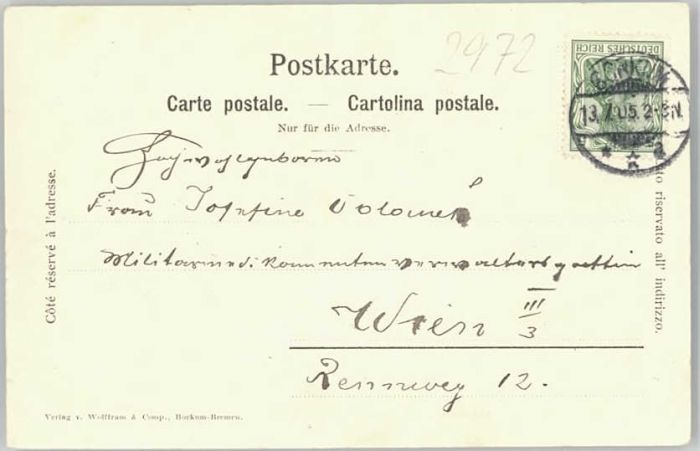 2972
DEUTSCHES REICH
BORKUM
13.7.05.2-3N.
* * a
Postkarte.
Carte postale. — Cartolina postale.
Nur für die Adresse.
Hochwohlgeboren
Frau Josefine
Militärmedikamentenverwaltersgattin
Wien III/3
Rennweg 12.
Côté réservé à l'adresse.
riservato all' indirizzo.
Verlag v. Wolffram & Comp., Borkum-Bremen.